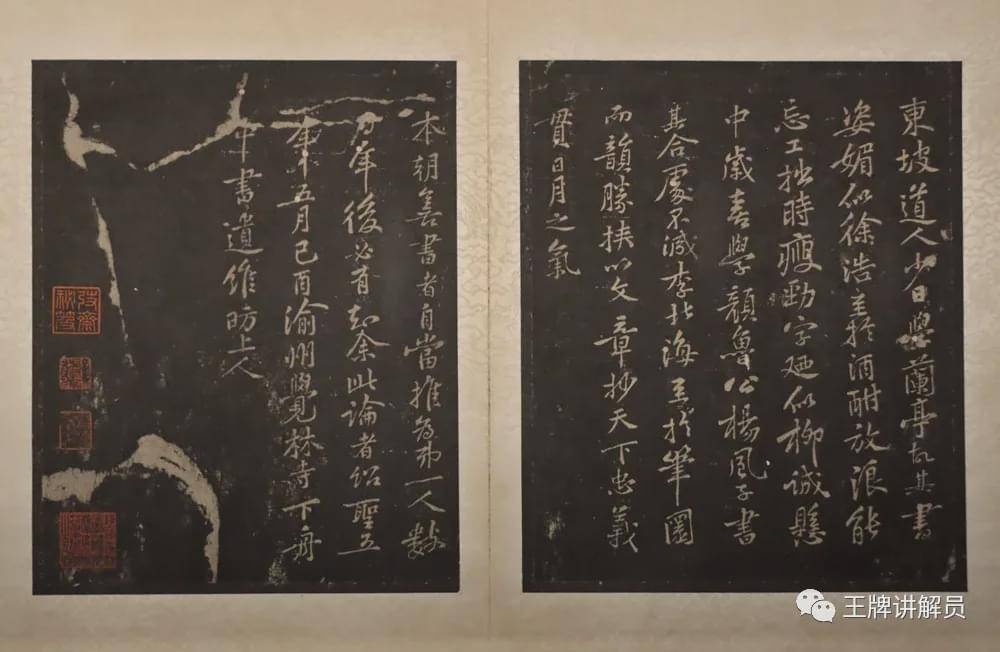 東坡道人少日學蘭亭故其書
姿媚似徐浩至於酒酣放浪能
忘工拙時瘦勁字廼似柳誠懸
中歲喜學顏魯公楊風子書
其合處不減李北海至於筆圜
而韻勝挾以文章妙天下忠義
貫日月之氣
本朝善書者自當推為第一人數
百年後必有知余此論者紹聖五
年五月己酉渝州覺林寺下舟
中書遺維昉上人
王牌讲解员